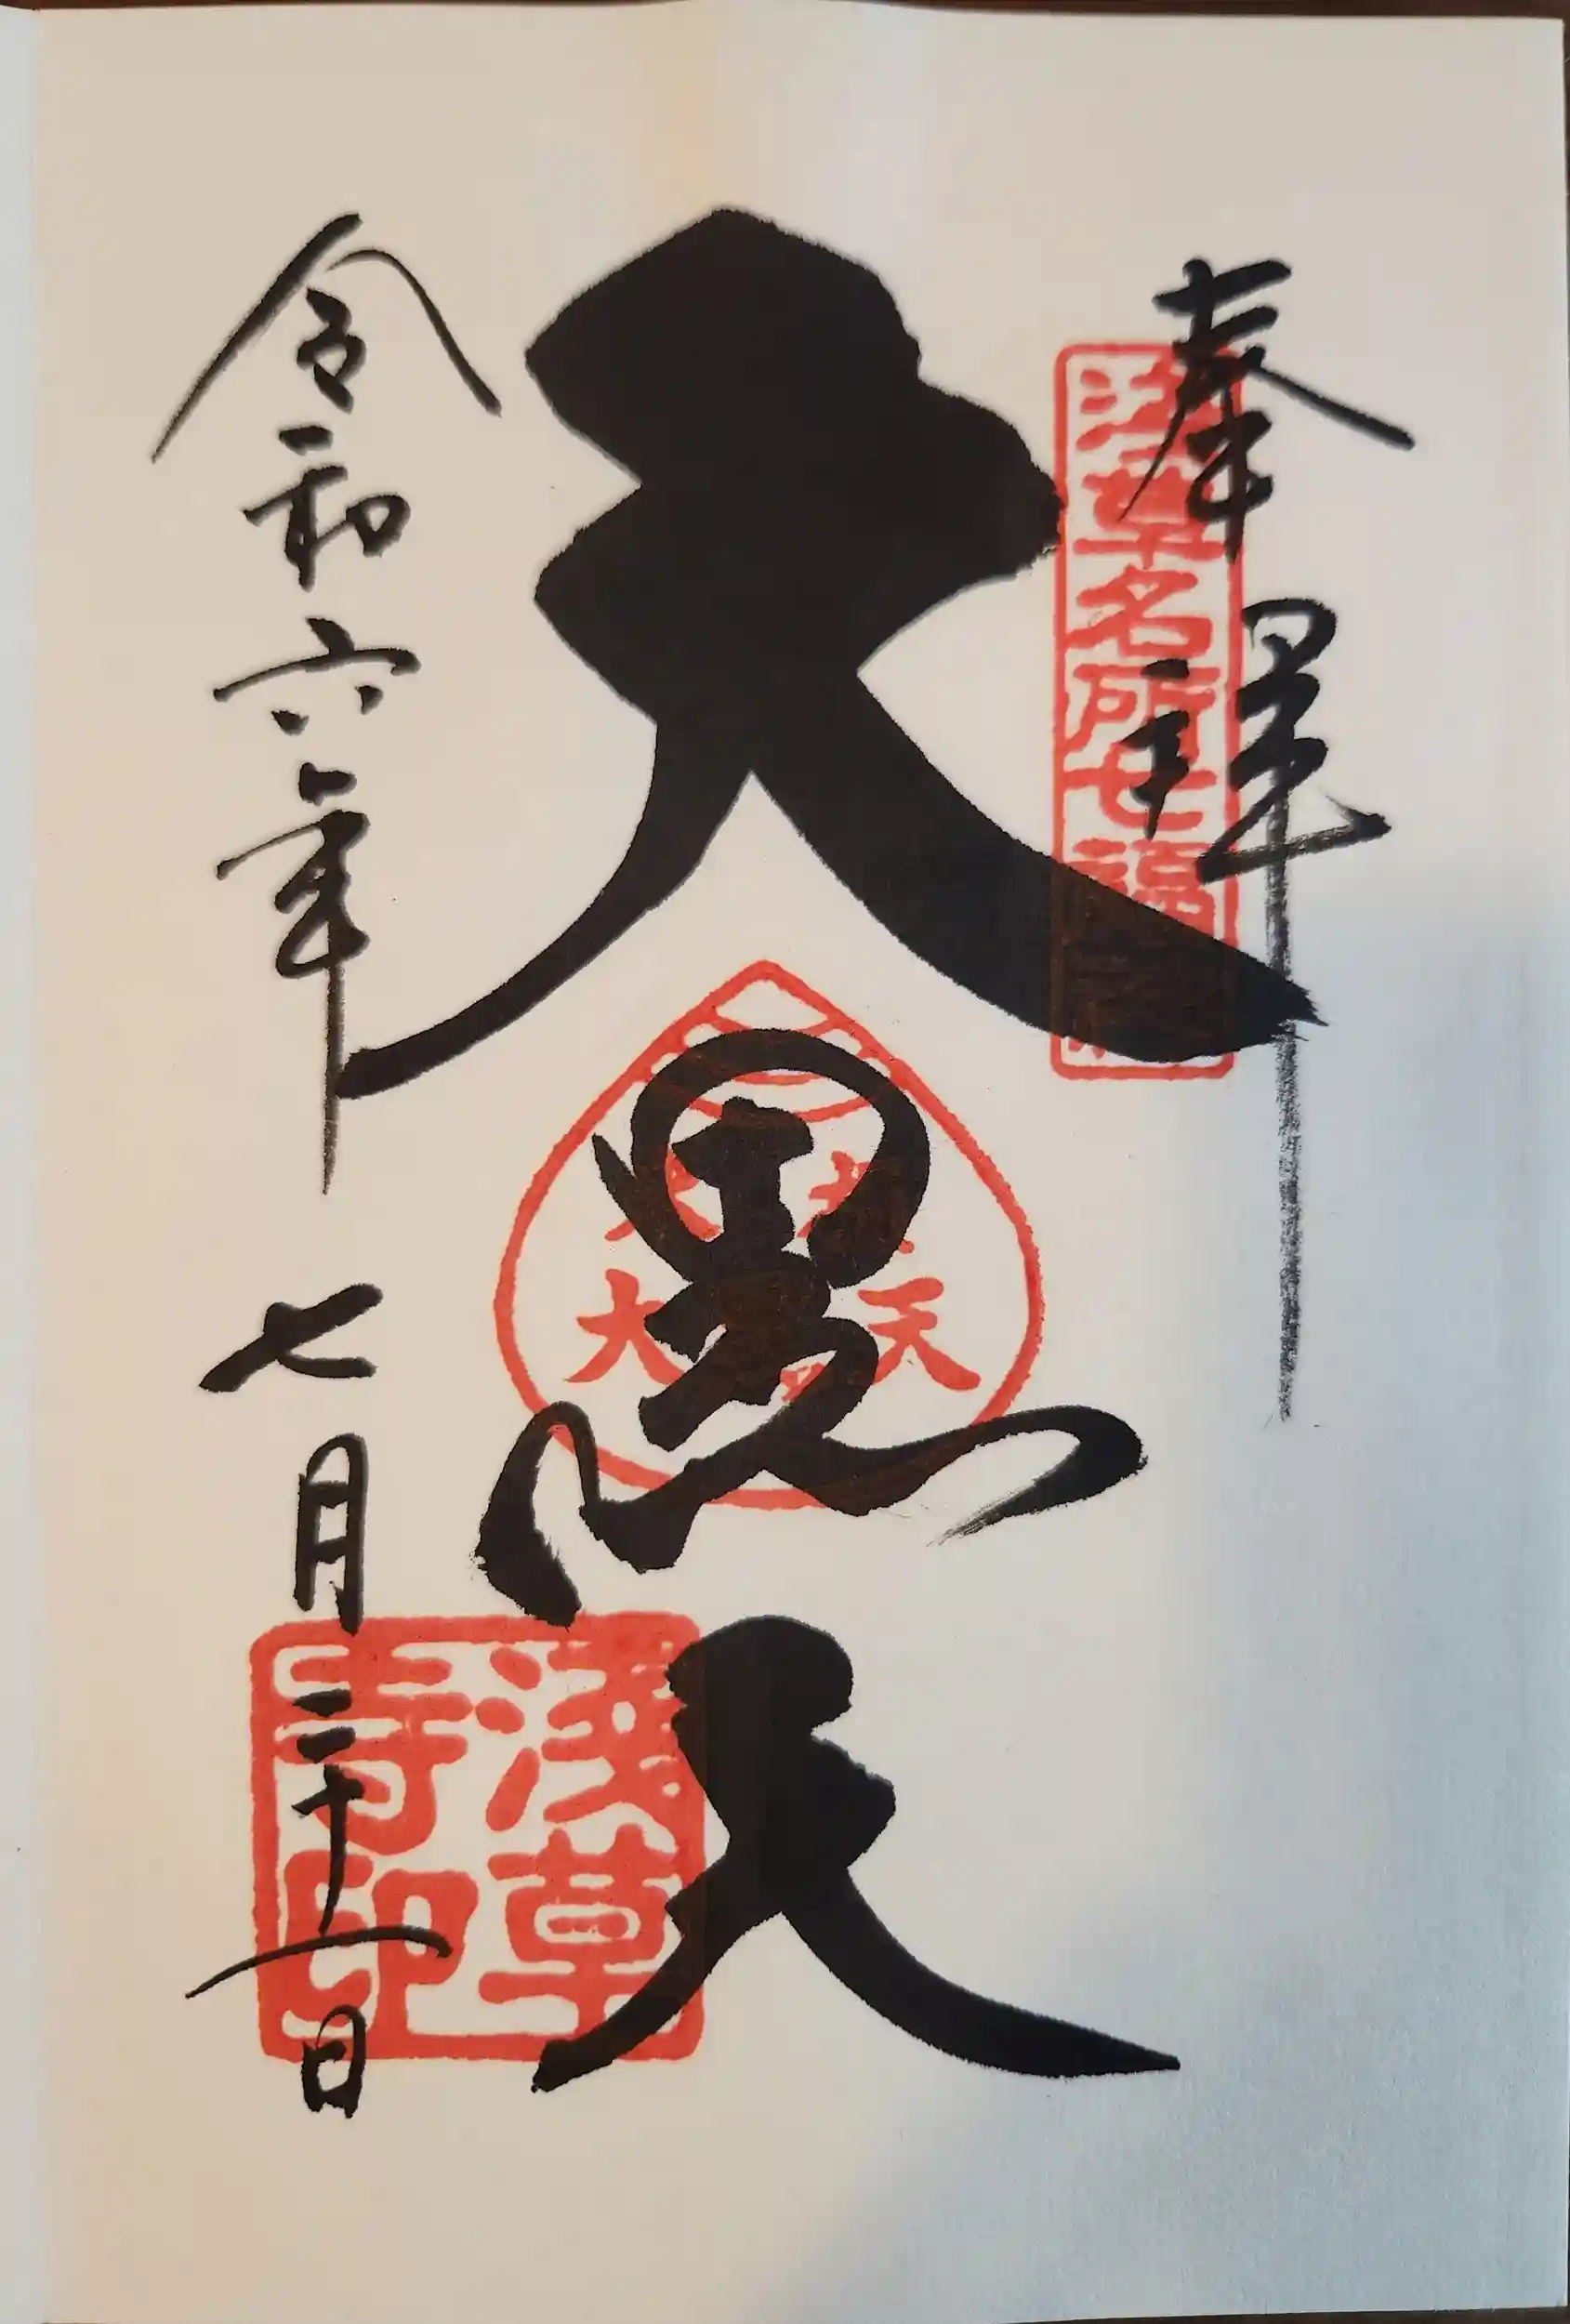 奉拝
浅草名所七福
大黒天
大 天
令和六年 七月二十一日
浅草
寺印